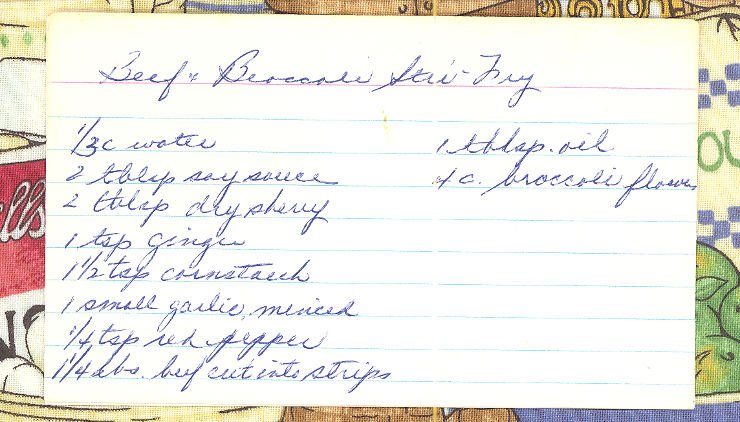 Beef & Broccoli Stri-Fry
1/3c water
2 tblsp soy souce
2 tblsp dry sherry
1 tsp ginger
1 1/2 tsp cornstarch
1 small garlic, minced
1/4 tsp red pepper
1 1/4 lbs. beef cut into strips
1 tblsp. oil
4 c. broccoli flowers